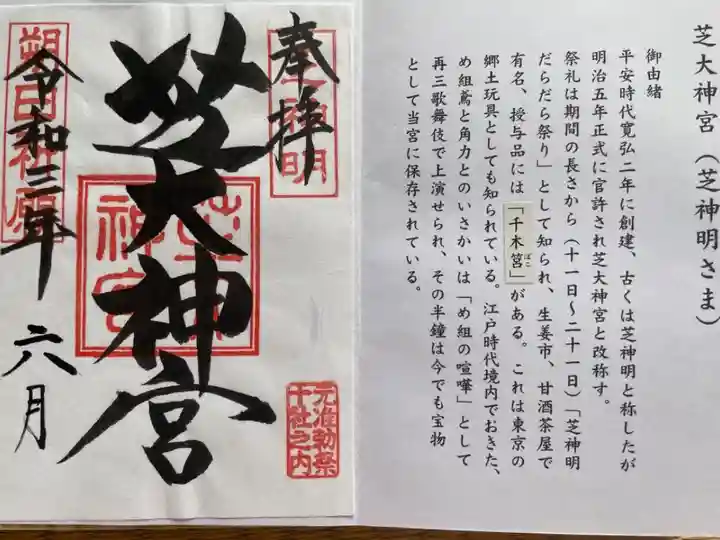 芝大神宮(芝神明さま)
御由緒
平安時代寛弘二年に創建、古くは芝神明と称したが
明治五年正式に官許され芝大神宮と改称す。
祭礼は期間の長さから(十一日~二十一日)「芝神明
だらだら祭り」として知られ、生姜市、甘酒茶屋で
有名、授与品には「千木筥」がある。これは東京の
ばこ
郷土玩具としても知られている。江戸時代境内でおきた、
め組鳶と角力とのいさかいは「め組の喧嘩」として
再三歌舞伎で上演せられ、その半鐘は今でも宝物
として当宮に保存されている。
奉拝
芝神明
芝大神宮
芝大神宮
元准勅祭
十社之内
朔日祈願
令和三年 六月